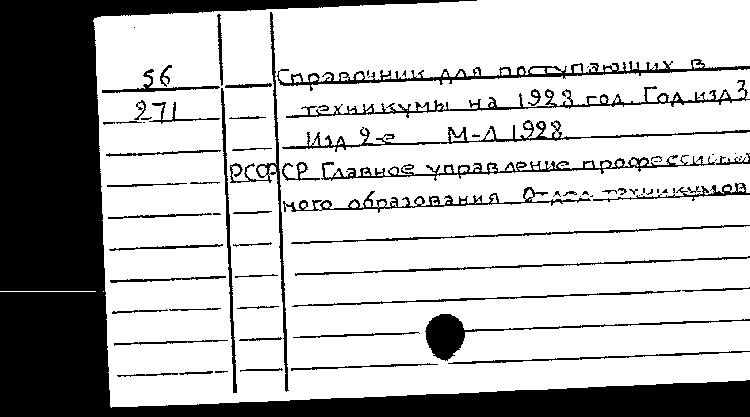 56
Справочник для поступающих в
271
техникумы на 1928 год. Год изд 3
Изд 2-е М-Л 1928.
РСФСР Главное управление професси
ного образования Отдел техникумов